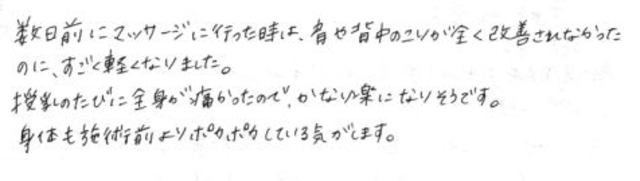 数日前にマッサージに行った時は、肩や背中のコリが全く改善されなかった
のに、すごく軽くなりました。
授乳のたびに全身が痛かったので、かなり楽になりそうです。
身体も施術前よりポカポカしている気がします。